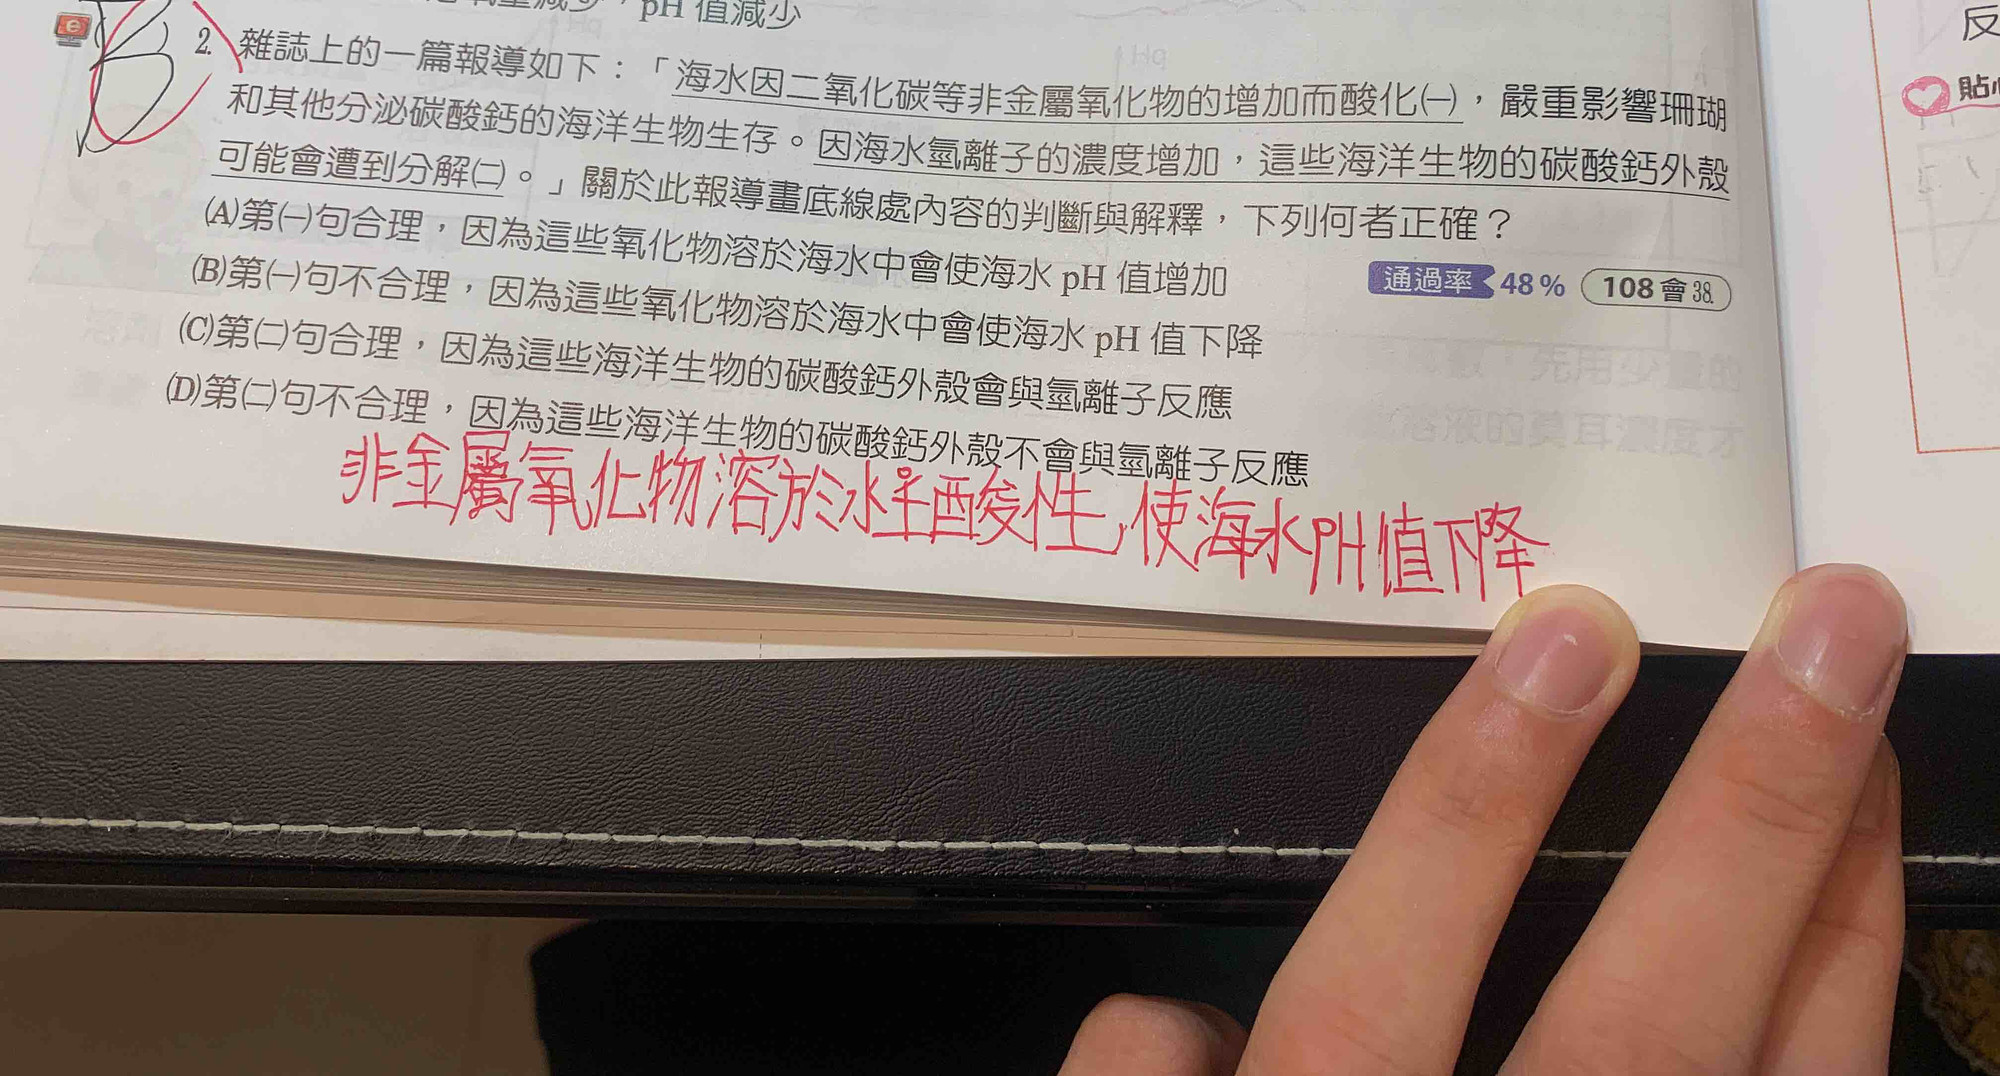 pH 值減少
2. 雜誌上的一篇報導如下：「海水因二氧化碳等非金屬氧化物的增加而酸化㈠，嚴重影響珊瑚
和其他分泌碳酸鈣的海洋生物生存。因海水氫離子的濃度增加，這些海洋生物的碳酸鈣外殼
可能會遭到分解㈡。」關於此報導畫底線處內容的判斷與解釋，下列何者正確？
(A)第㈠句合理，因為這些氧化物溶於海水中會使海水 pH 值增加
通過率 48% 108 會 38.
(B)第㈠句不合理，因為這些氧化物溶於海水中會使海水 pH 值下降
(C)第㈡句合理，因為這些海洋生物的碳酸鈣外殼會與氫離子反應
(D)第㈡句不合理，因為這些海洋生物的碳酸鈣外殼不會與氫離子反應
非金屬氧化物溶於水呈酸性，使海水PH值下降
B
反
貼